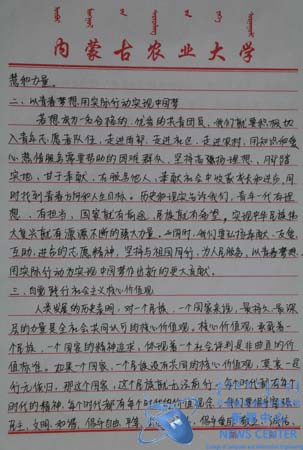 内蒙古农业大学
慧和力量。
二、以青春梦想用实际行动实现中国梦
若想成为一名合格的、优秀的共青团员，我们就要积极加入
青年志愿者队伍，走进西部、走进社区、走进农村，用知识和爱
心热情服务需要帮助的困难群众，坚持高扬理想、脚踏
实地、甘于奉献，在服务他人、奉献社会中收获成长和进步，同
时找到青春方向和人生目标。历史和现实告诉我们，青年一代有理
想、有担当，国家就有前途，民族就有希望，实现中华民族伟
大复兴就有源源不断的强大力量。
互助、进步的志愿精神，坚持与祖国同行、为人民服务，以青春梦想
用实际行动为实现中国梦作出新的更大贡献。
三、自觉践行社会主义核心价值观
人类发展的历史表明，对一个民族、一个国家来说，最持久、最深
层的力量是全社会共同认可的核心价值观。核心价值观，承载着一
个民族、一个国家的精神追求，体现着一个社会评判是非曲直的价
值标准。如果一个民族、一个国家没有共同的核心价值观，莫衷一是，
行无依归，那这个国家、这个民族就无法前行。每个时代都有每个
时代的精神，每个时代都有每个时代的价值观念。
民主、文明、和谐，倡导自由、平等
NEWS CENTER